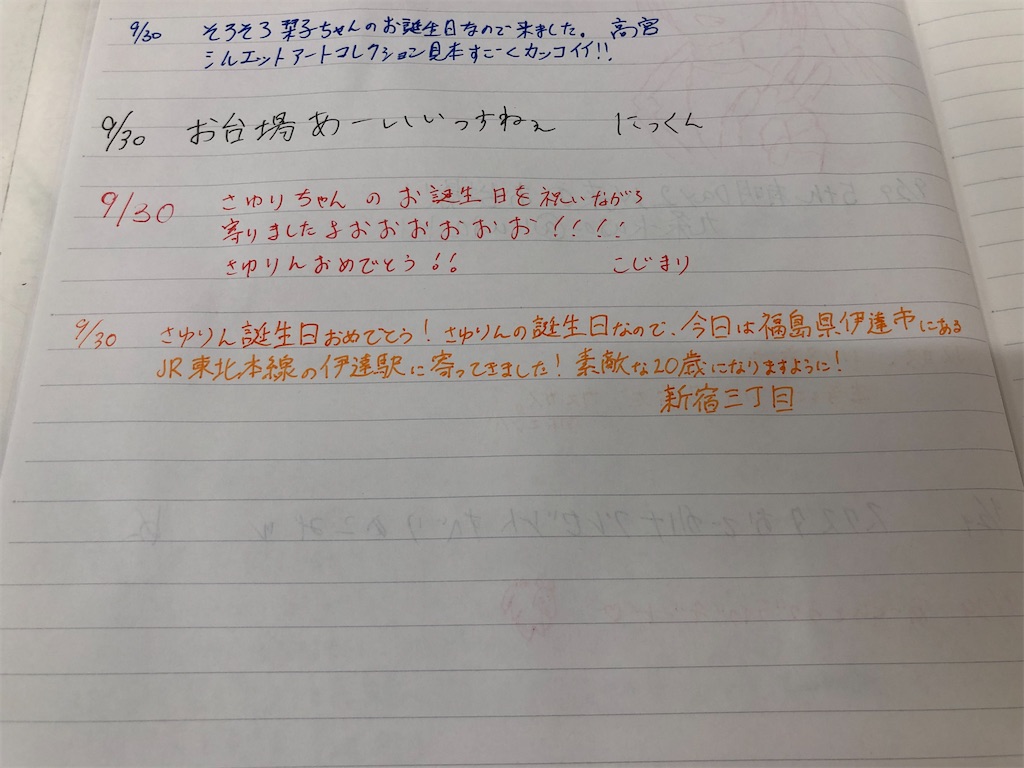 9/30 そろそろ梨子ちゃんのお誕生日なので来ました。 高宮
シルエットアートコレクション見本すごーくカッコイイ!!
9/30 お台場あーいいっすねぇ にっくん
9/30 さゆりちゃんのお誕生日を祝いながら
寄りましたよおおおおおお!!!!
さゆりんおめでとう!! こじまり
9/30 さゆりん誕生日おめでとう!さゆりんの誕生日なので、今日は福島県伊達市にある
JR東北本線の伊達駅に寄ってきました!素敵な20歳になりますように!
新宿三丁目